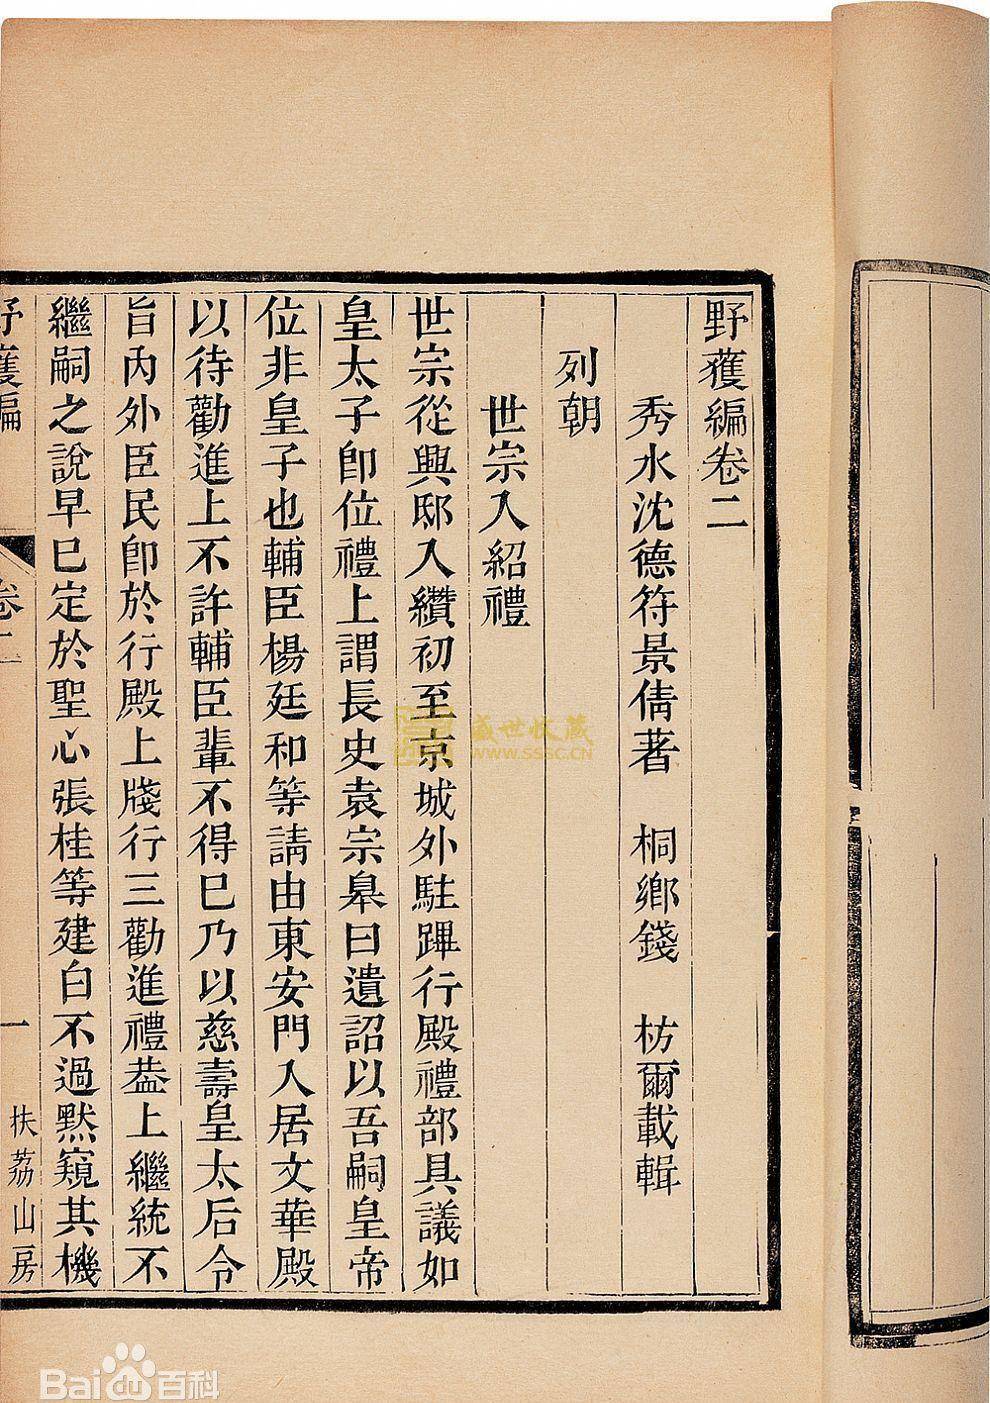 野獲編卷二
秀水沈德符景倩著　桐鄉錢　枋爾載輯
列朝
世宗入紹禮
世宗從興邸入纘初至京城外駐蹕行殿禮部具議如
皇太子卽位禮上謂長史袁宗皋曰遺詔以吾嗣皇帝
位非皇子也輔臣楊廷和等請由東安門入居文華殿
以待勸進上不許輔臣輩不得已乃以慈壽皇太后令
旨內外臣民卽於行殿上牋行三勸進禮葢上繼統不
繼嗣之說早已定於聖心張桂等建白不過默窺其機
野獲編　卷二　一　扶荔山房
盛世收藏
WWW.SSSC.CN
Bai du 百科